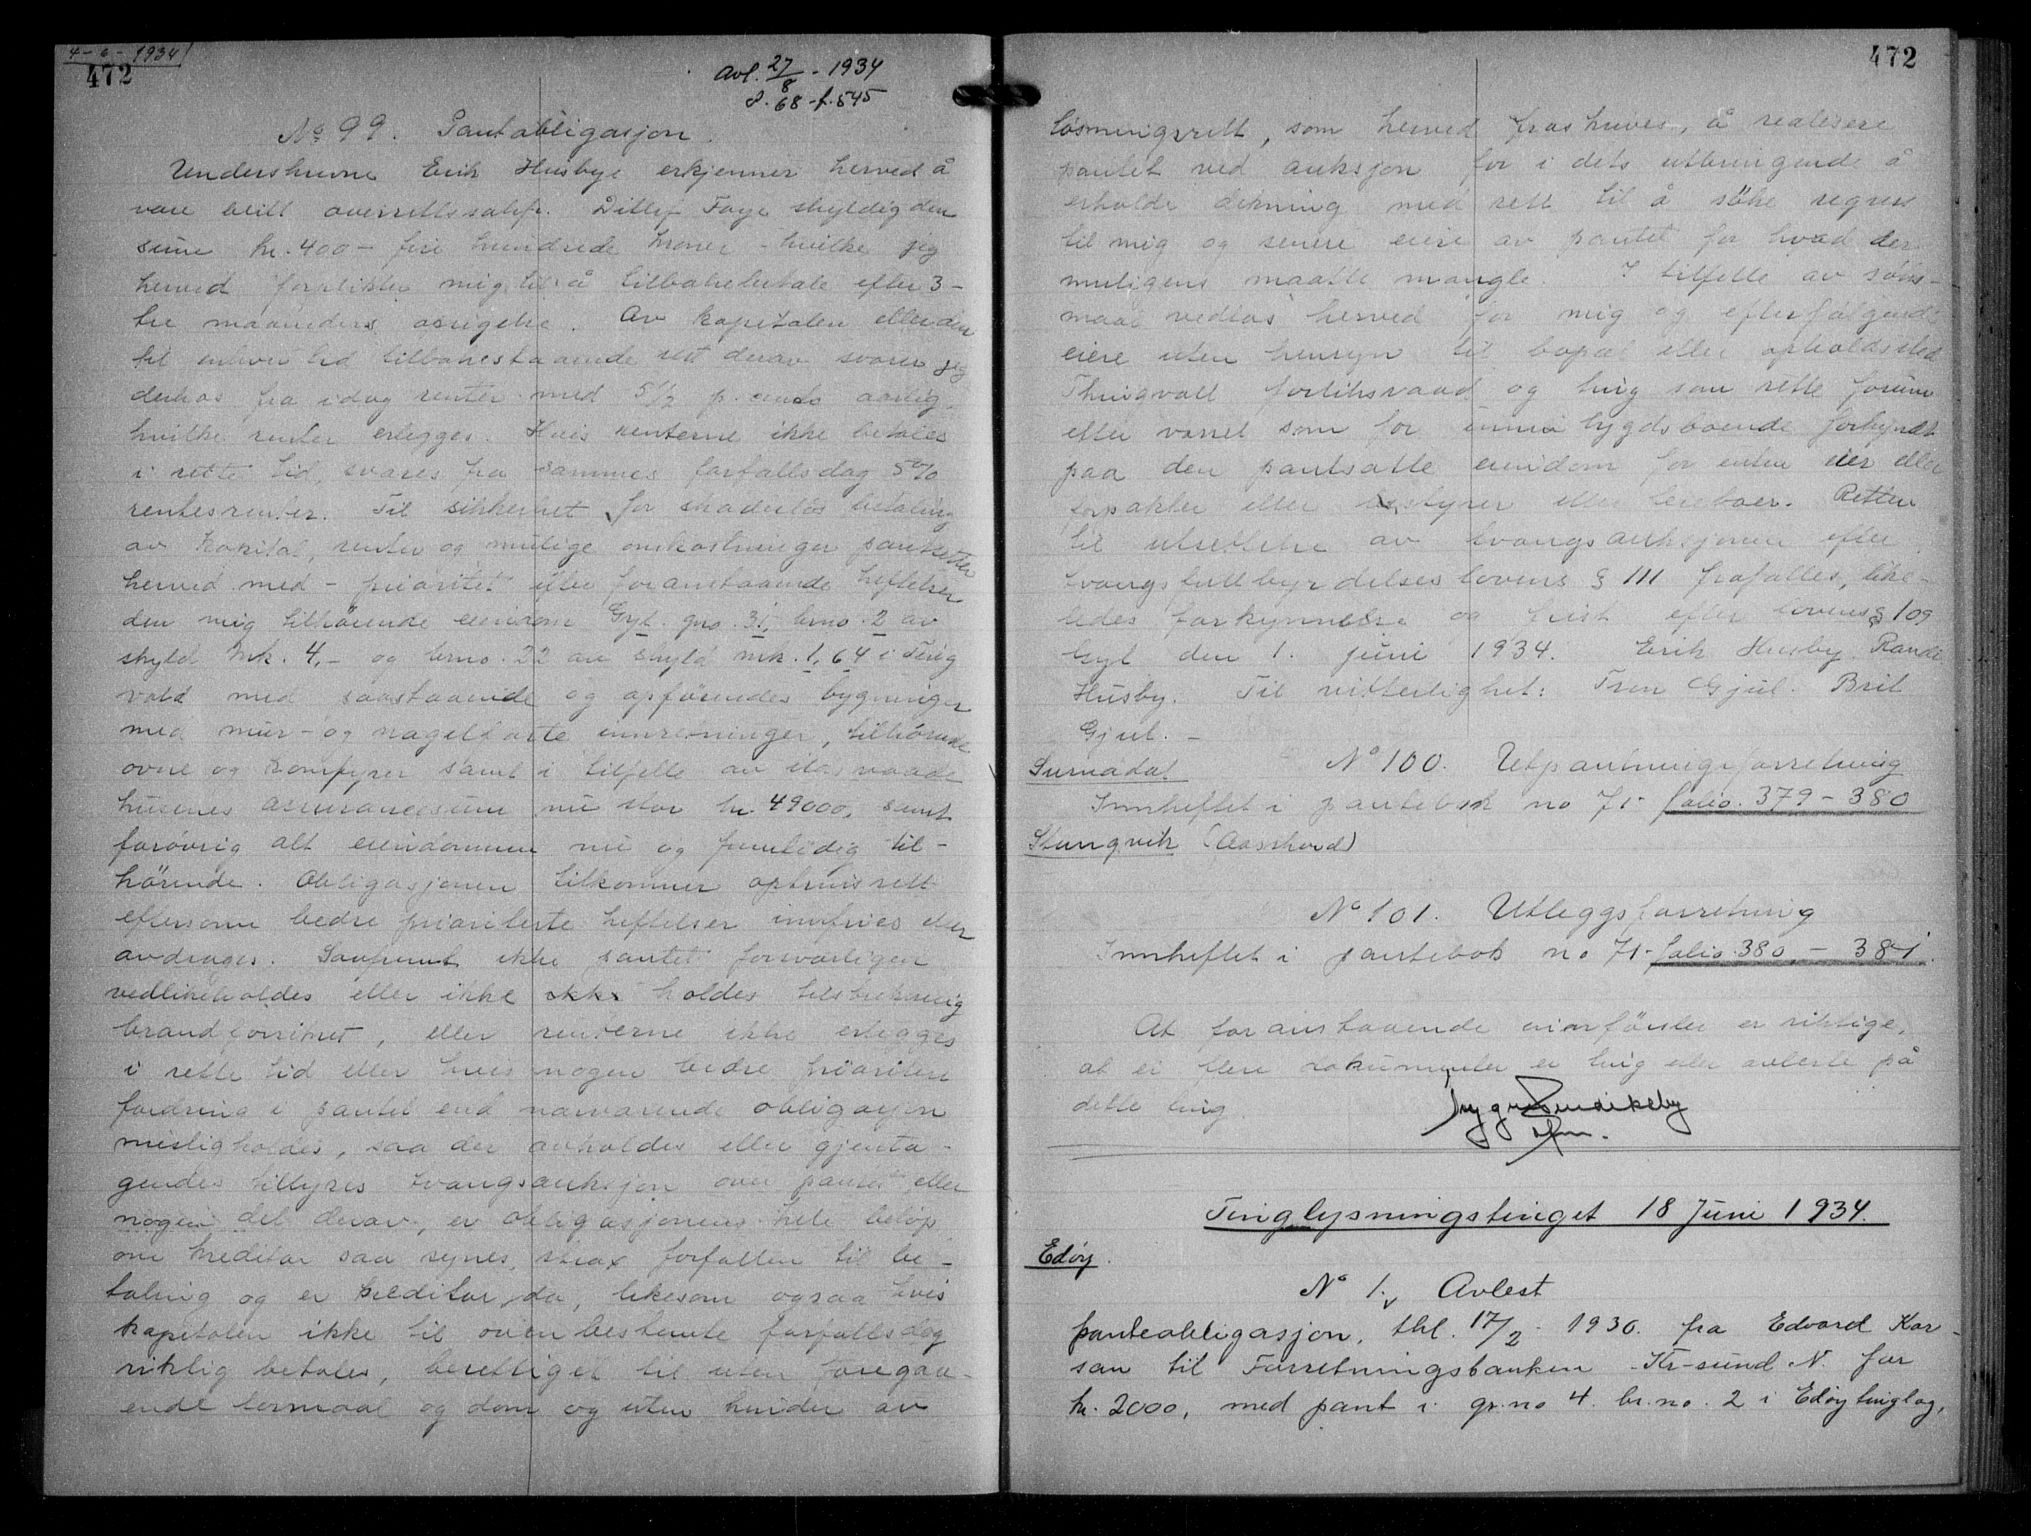 4-6-1934
472
Avl. 27/8 - 1934
d. 68 - f. 545
No 99. Pantobligasjon.
Undershrevne Erik Husbye erkjenner herved å
være blitt overrettssakf. Ditlef Faye skyldig den
sum kr. 400 - fire hundrede kroner - hvilke jeg
herved forplikter mig til å tilbakebetale efter 3 -
tre maaneders opsigelse. Av kapitalen eller den
til enhver tid tilbakestaaende rest derav svarer jeg
derhos fra idag renter med 5 1/2 p. cents aarlig,
hvilke renter erlegges. Hvis renterne ikke betales
i rette tid, svares fra sammes forfallsdag 5%
rentesrenter. Til sikkerhet for skadesløs betaling
av kapital, renter og mulige omkostninger pantsetter
herved med - prioritet efter foranstaaende heftelser
den mig tilhørende eiendom Gyl. gno. 31, brno. 2 av
skyld mk. 4,- og brno. 22 av skyld mk. 1,64 i Ting
vold med paastaaende og opførendes bygninger
med mur- og nagelfaste innretninger, tilhørende
ovne og komfyrer samt i tilfelle av ildsvaade
husenes assurancesum nu stor kr. 49000, samt
forøvrig alt eiendommen nu og fremtidig til-
hørende. Obligasjonen tilkommer optrinsrett
eftersom bedre prioriterte heftelser innfries eller
avdrages. Saafremt ikke pantet forsvarligen
vedlikeholdes eller ikke holdes tilstrekkelig
brandforsikret, eller renterne ikke erlegges
i rette tid eller hvis nogen bedre prioritert
fordring i pantet end nærværende obligasjon
misligholdes, saa der avholdes eller gjenta-
gendes tillyses tvangsauksjon over pantet eller
nogen del derav, er obligasjonens hele beløp
om kreditor saa synes, strax forfallen til be-
taling og er kreditor da, likesom ogsaa hvis
kapitalen ikke til ovenbestemte forfallsdag
riktig betales, berettiget til uten foregaa-
ende lovmaal og dom og uten hinder av
472
løsningsrett, som herved fraskrives, å realisere
pantet ved auksjon for i dets utbringende å
erholde dekning med rett til å søke regress
til mig og senere eiere av pantet for hvad der
muligens maatte mangle. I tilfelle av søks-
maal vedtas herved for mig og efterfølgende
eiere uten hensyn til bopæl eller opholdssted
Thingvoll forliksraad og ting som rette forum
efter varsel som for innenbygdsboende forkyndt
paa den pantsatte eiendom for enten eier eller
forpakter eller bestyrer eller leieboer. Retten
til utsettelse av tvangsauksjonen efter
tvangsfullbyrdelseslovens § 111 frafalles, like-
ledes forkynnelse og frist efter lovens § 109
Gyl den 1. juni 1934. Erik Husby. Randi
Husby. Til vitterlighet: Tron Gjul. Brit
Gjul. -
Surnadal No 100. Utpantningsforretning
Innheftet i pantebok no 71 - folio. 379 - 380
Stangvik (Aasskard)
No 101. Utleggsforretning
Innheftet i pantebok no 71 - folio 380 - 381.
At foranstaaende innførsler er riktige,
at ei flere dokumenter er ting eller avleste på
dette ting.
Tinglysningstinget 18 Juni 1934.
Edøy.
No 1. Avlest
panteobligasjon, thl. 17/2 - 1930. fra Edvard Kar-
san til Forretningsbanken Kr-sund N. for
kr. 2000, med pant i gr.no 4. br.no. 2 i Edøy tinglag,